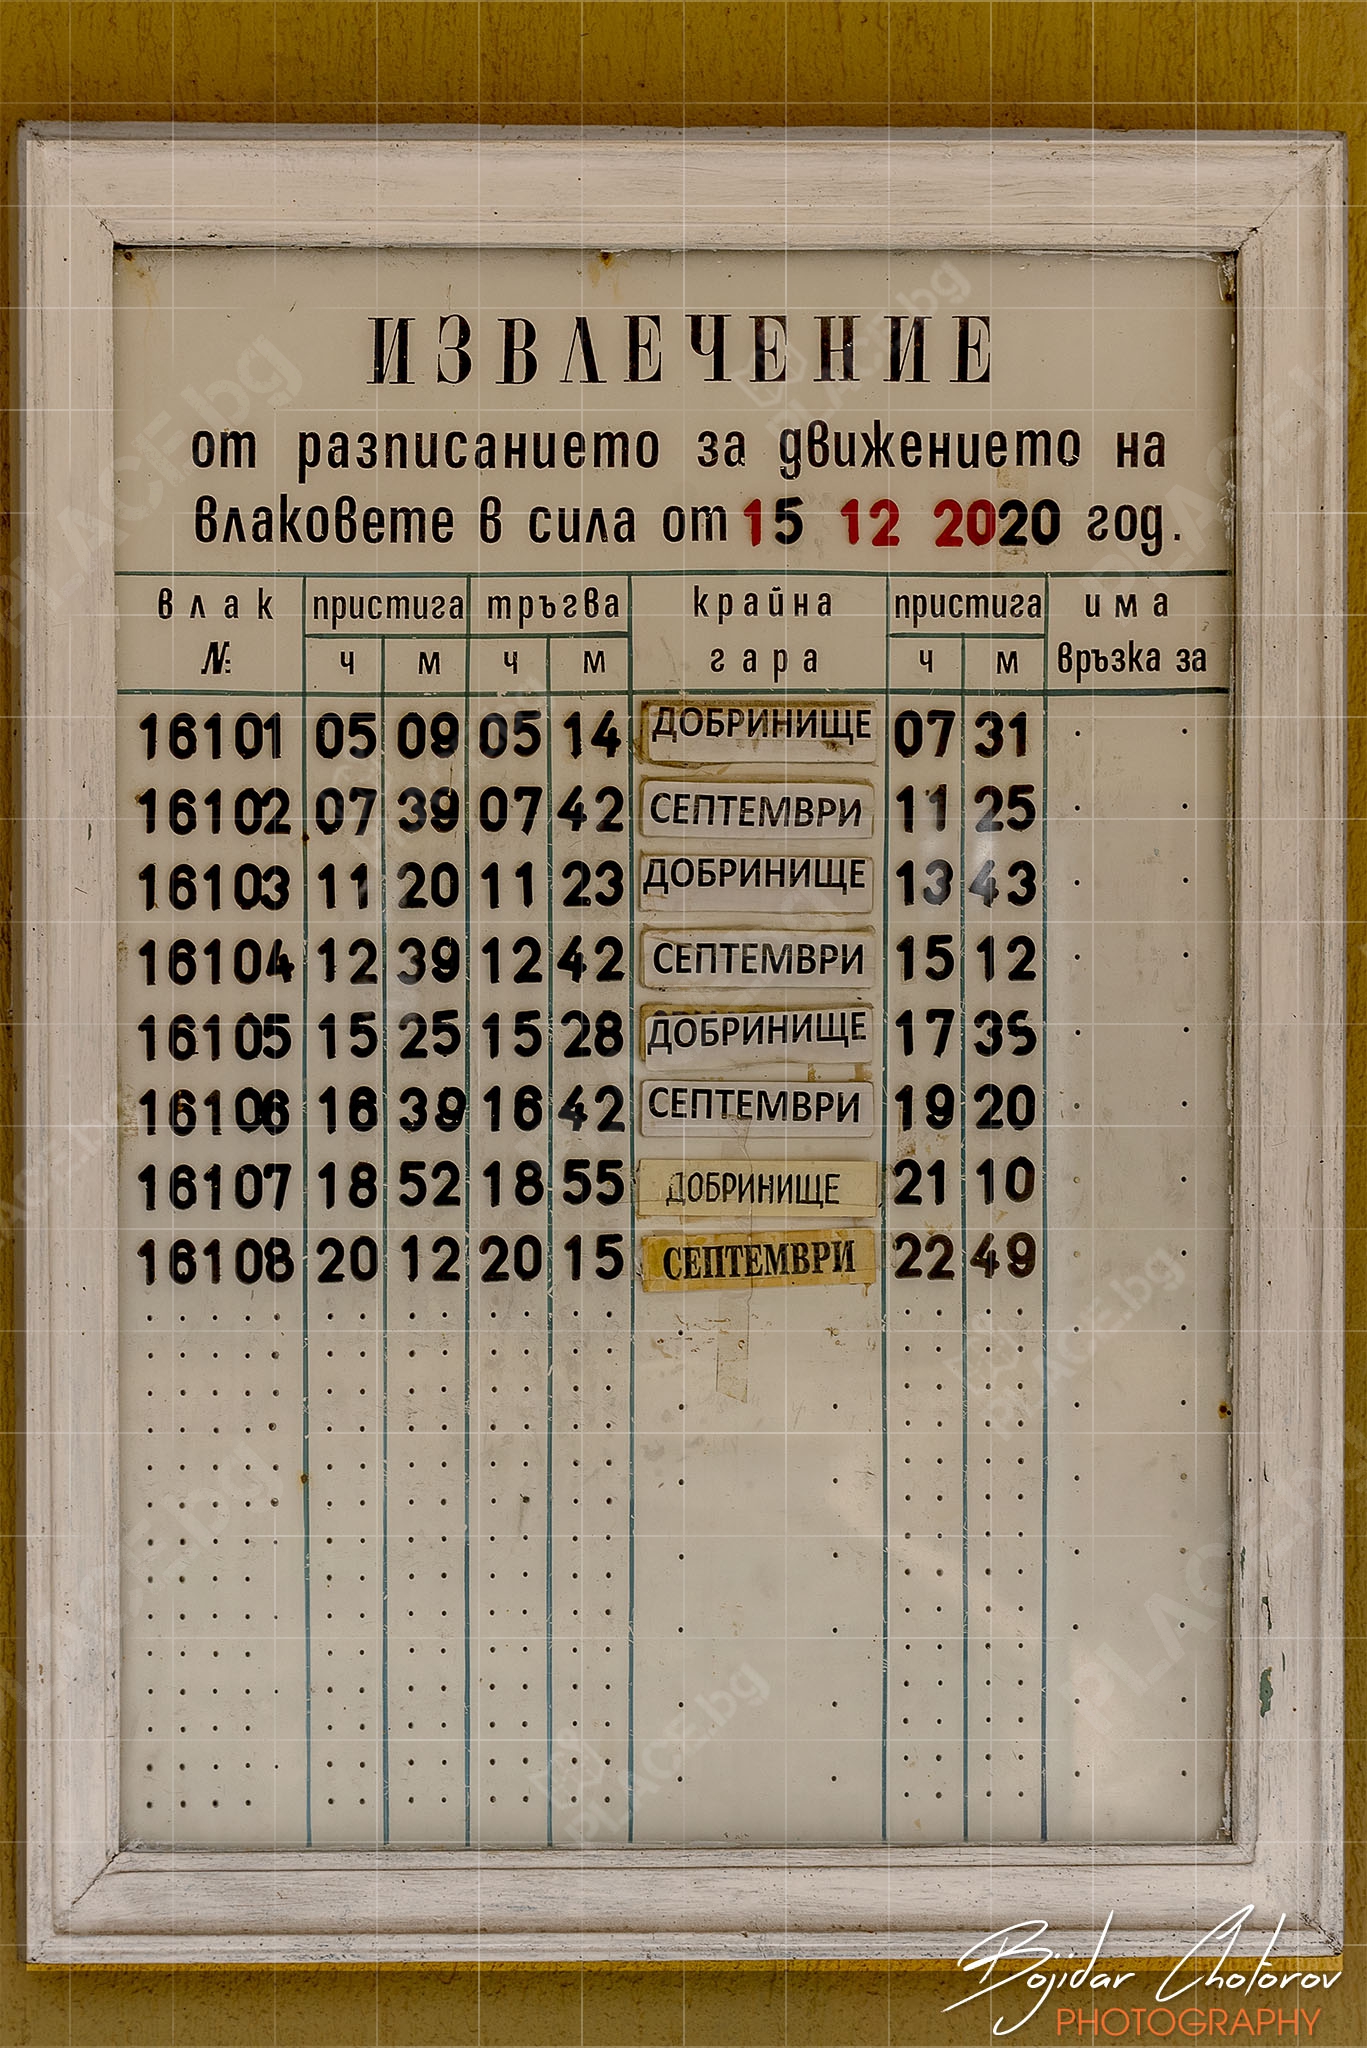 ИЗВЛЕЧЕНИЕ
от разписанието за движението на
влаковете в сила от 15 12 2020 год.
влак пристига тръгва крайна пристига има
№: ч м ч м гара ч м връзка за
16101 05 09 05 14 ДОБРИНИЩЕ 07 31
16102 07 39 07 42 СЕПТЕМВРИ 11 25
16103 11 20 11 23 ДОБРИНИЩЕ 13 43
16104 12 39 12 42 СЕПТЕМВРИ 15 12
16105 15 25 15 28 ДОБРИНИЩЕ 17 35
16106 16 39 16 42 СЕПТЕМВРИ 19 20
16107 18 52 18 55 ДОБРИНИЩЕ 21 10
16108 20 12 20 15 СЕПТЕМВРИ 22 49
PLACE.bg
PLACE.bg
PLACE.bg
PLACE.bg
Bojidar Chotorov
PHOTOGRAPHY